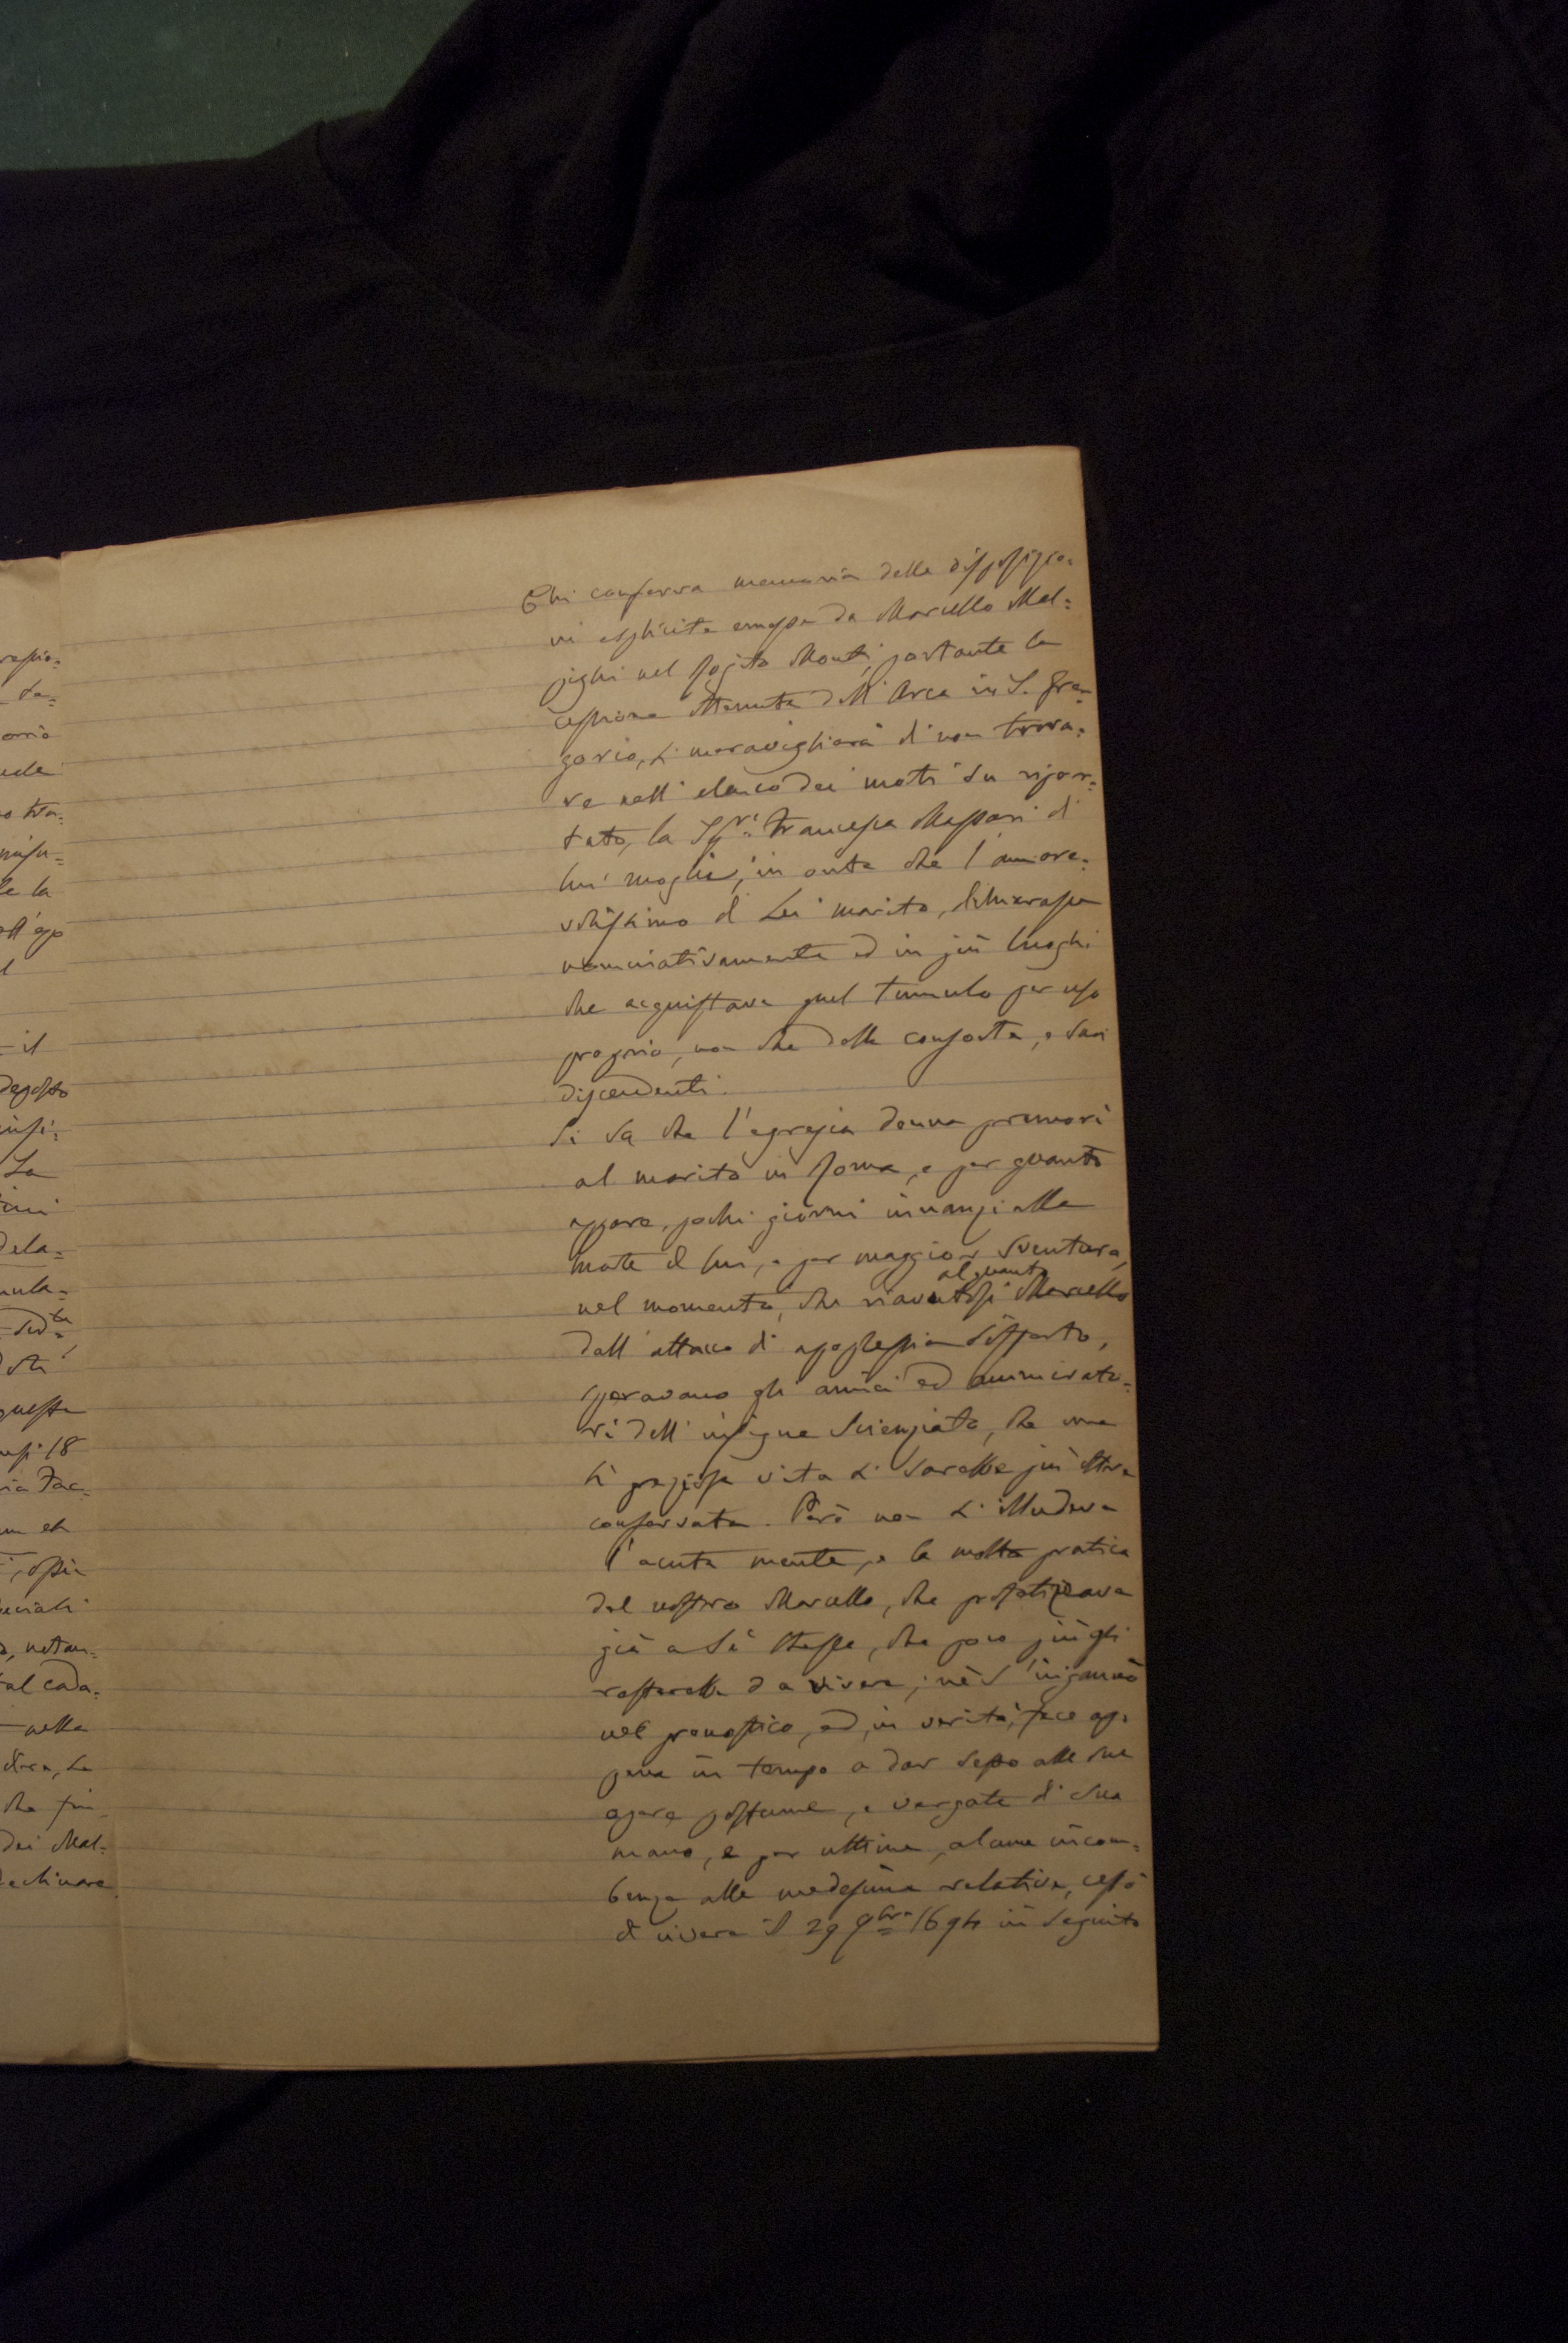 ressio=
da=
orrio
ede
o tra=
missu=
le la
all'epo
il
deposto
insi=
La
cini
dela=
mula=
questa
18
ria Fac=
um et
, ossia
peciali
o, notan=
al cada=
nella
che fu
dei Mal=
declinare
Chi conserva memoria delle disposizio=
ni esplicite emesse da Marcello Mal=
pighi nel rogito Monti, portante la
cessione ottenuta dell'Arca in S. Gre=
gorio, si meraviglierà di non trova=
re nell'elenco dei morti su ripor=
tato, la Sigra Francesca Massari di
lui moglie, in onta che l'amore=
volissimo di Lei marito, dichiarasse
nominativamente ed in più luoghi
che acquistava quel tumulo per uso
proprio, non che della consorte, e suoi
discendenti.
Si sa che l'egregia donna premorì
al marito in Roma, e per quanto
appare, pochi giorni innanzi alla
morte di lui, e per maggior sventura,
alquanto
nel momento, che riavutosi Marcello
dall'attacco di apoplessia sofferto,
speravano gli amici ed ammirato=
ri dell'insigne Scienziato, che una
sì preziosa vita si sarebbe più oltre
conservata. Però non s'illudeva
l'acuta mente, e la molta pratica
del nostro Marcello, che profetizzava
già a sè stesso, che poco più gli
resterebbe da vivere; nè s'ingannò
nel pronostico, ed, in verità, fece ap=
pena in tempo a dar sesto alle sue
opere postume, e vergate di sua
mano, e per ultime, alcune incom=
benze alle medesime relative, cessò
di vivere il 29 9bre 1694 in seguito